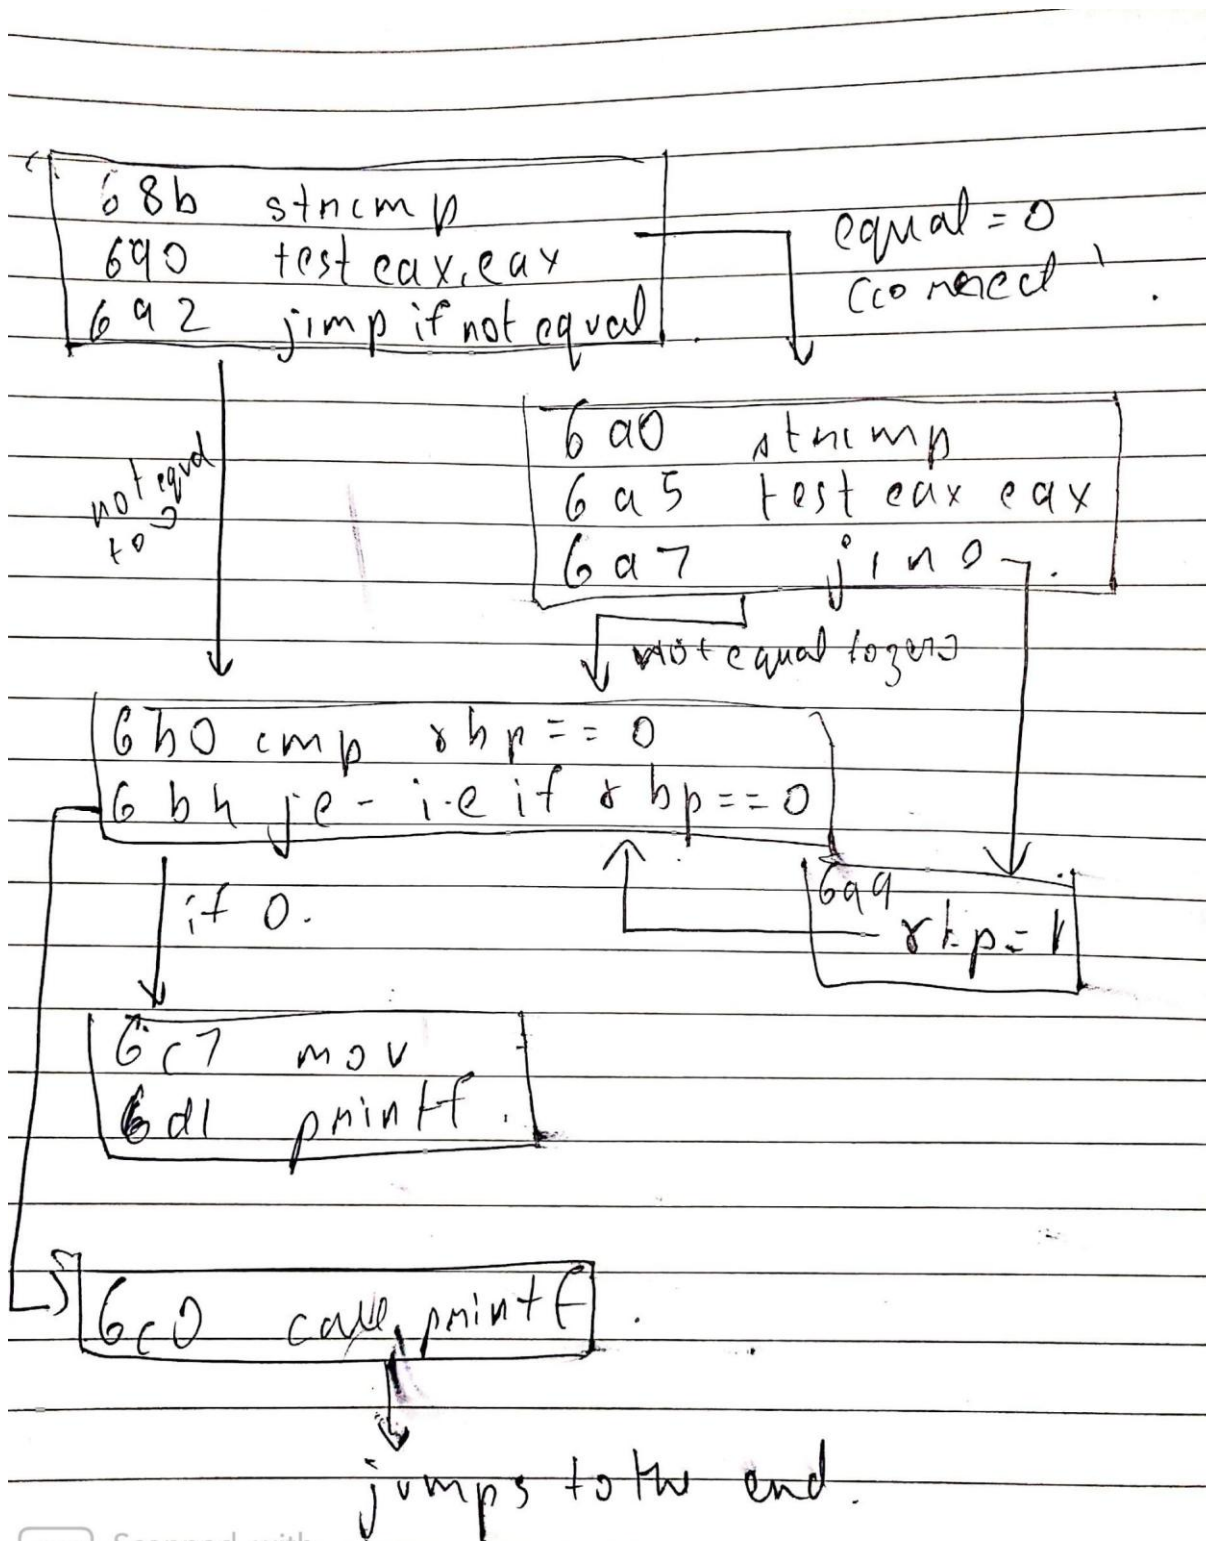 68b strcmp
690 test eax, eax
692 jump if not equal
equal = 0
(correct)
not equal
to 0
6a0 strcmp
6a5 test eax eax
6a7 jine
not equal to zero
6b0 cmp rbp == 0
6b4 je - i.e if rbp == 0
if 0.
6a9
rbp = 1
6c7 mov
6d1 printf.
6c0 call printf
jumps to the end.
Scanned with